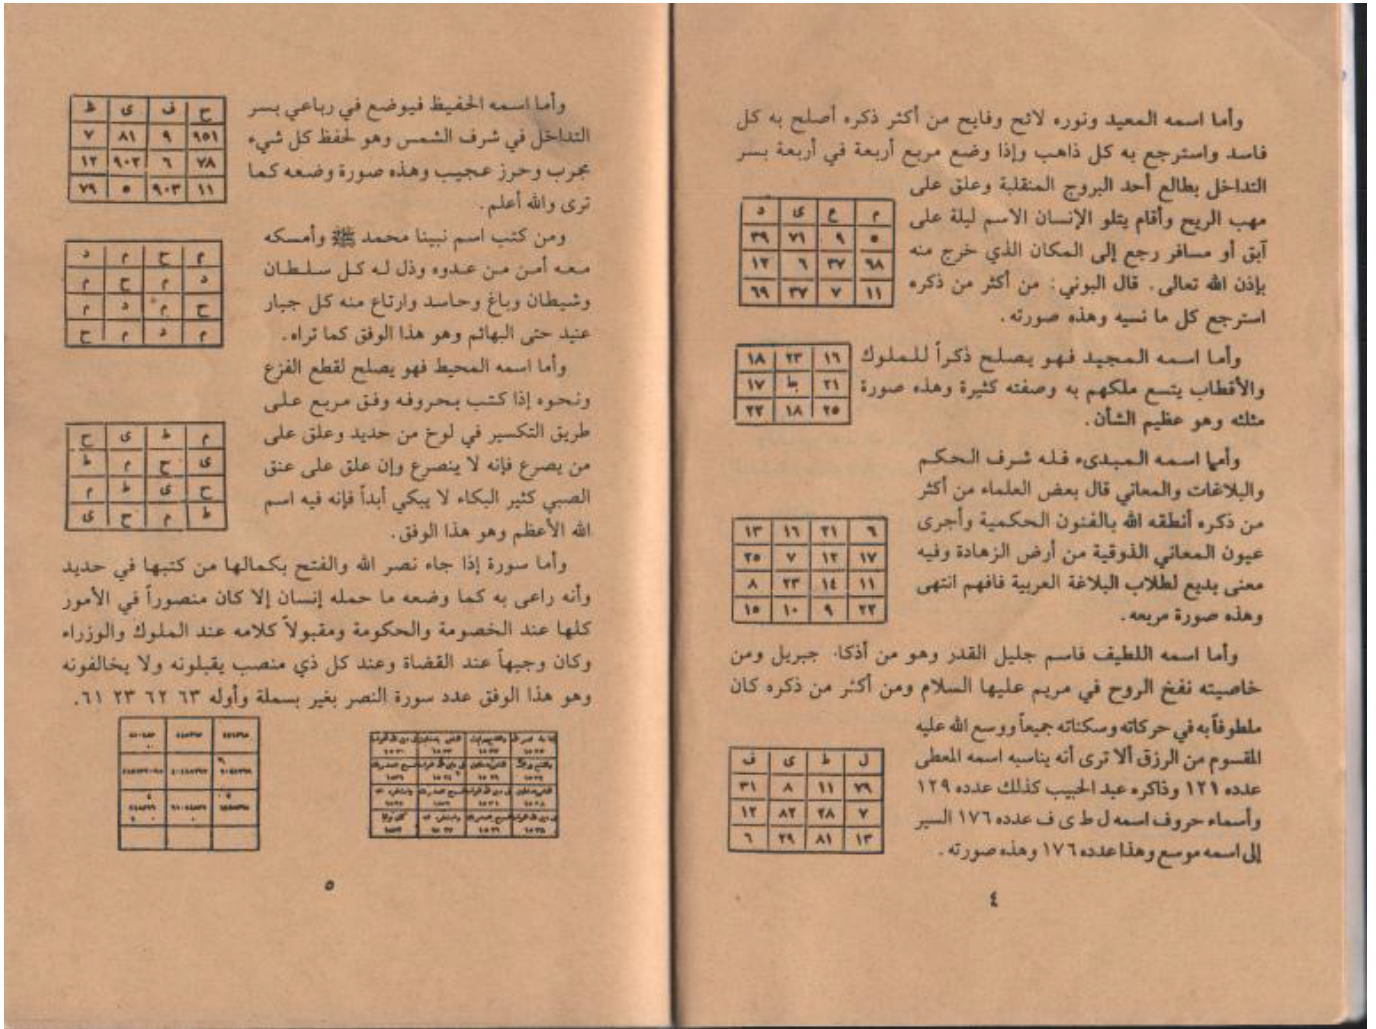 وأما اسمه المعيد ونوره لائح وفايح من أكثر ذكره أصلح به كل
فاسد واسترجع به كل ذاهب وإذا وضع مربع أربعة في أربعة بسر
التداخل بطالع أحد البروج المنقلبة وعلق على
مهب الريح وأقام يتلو الإنسان الاسم ليلة على
آبق أو مسافر رجع إلى المكان الذي خرج منه
بإذن الله تعالى. قال البوني: من أكثر من ذكره
استرجع كل ما نسيه وهذه صورته.
م ع ى د
٥ ٩ ٧١ ٣٩
٦٨ ٣٧ ٦ ١٢
١١ ٧ ٣٧ ٦٩
وأما اسمه المجيد فهو يصلح ذكراً للملوك
والأقطاب يتسع ملكهم به وصفته كثيرة وهذه صورة
مثلثه وهو عظيم الشأن.
١٦ ٢٣ ١٨
٢١ ط ١٧
٢٥ ١٨ ٢٢
وأما اسمه المبدىء فله شرف الحكم
والبلاغات والمعاني قال بعض العلماء من أكثر
من ذكره أنطقه الله بالفنون الحكمية وأجرى
عيون المعاني الذوقية من أرض الزهادة وفيه
معنى بديع لطلاب البلاغة العربية فافهم انتهى
وهذه صورة مربعه.
٦ ٢١ ١٦ ١٣
١٧ ١٢ ٧ ٢٥
١١ ١٤ ٢٣ ٨
٢٢ ٩ ١٠ ١٥
وأما اسمه اللطيف فاسم جليل القدر وهو من أذكا. جبريل ومن
خاصيته نفخ الروح في مريم عليها السلام ومن أكثر من ذكره كان
ملطوفاً به في حركاته وسكناته جميعاً ووسع الله عليه
المقسوم من الرزق ألا ترى أنه يناسبه اسمه المعطى
عدده ١٢١ وذاكره عبد الحبيب كذلك عدده ١٢٩
وأسماء حروف اسمه ل ط ى ف عدده ١٧٦ السير
إلى اسمه موسع وهذا عدده ١٧٦ وهذه صورته.
ل ط ى ف
٧٩ ١١ ٨ ٣١
٧ ٢٨ ٨٢ ١٢
١٣ ٨١ ٢٩ ٦
٤
وأما اسمه الحفيظ فيوضع في رباعي بسر
التداخل في شرف الشمس وهو لحفظ كل شيء
مجرب وحرز عجيب وهذه صورة وضعه كما
ترى والله أعلم.
ح ف ى ظ
٩٥١ ٩ ٨١ ٧
٧٨ ٦ ٩٠٢ ١٢
١١ ٩٠٣ ٥ ٧٩
ومن كتب اسم نبينا محمد ﷺ وأمسكه
معه أمن من عدوه وذل له كل سلطان
وشيطان وباغ وحاسد وارتاع منه كل جبار
عنيد حتى البهائم وهو هذا الوفق كما تراه.
م ح م د
د م ح م
ح م د م
م د م ح
وأما اسمه المحيط فهو يصلح لقطع الفزع
ونحوه إذا كتب بحروفه وفق مربع على
طريق التكسير في لوح من حديد وعلق على
من يصرع فإنه لا ينصرع وإن علق على عنق
الصبي كثير البكاء لا يبكي أبداً فإنه فيه اسم
الله الأعظم وهو هذا الوفق.
م ط ى ح
ى ح م ط
ح ى ط م
ط م ح ى
وأما سورة إذا جاء نصر الله والفتح بكمالها من كتبها في حديد
وأنه راعى به كما وضعه ما حمله إنسان إلا كان منصوراً في الأمور
كلها عند الخصومة والحكومة ومقبولاً كلامه عند الملوك والوزراء
وكان وجيهاً عند القضاة وعند كل ذي منصب يقبلونه ولا يخالفونه
وهو هذا الوفق عدد سورة النصر بغير بسملة وأوله ٦٣ ٦٢ ٢٣ ٦١.
٥